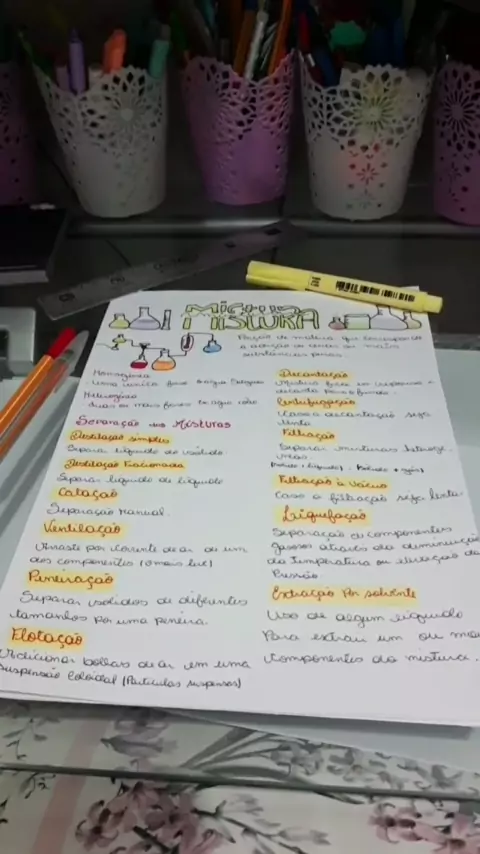 MISTURA
Porção de matéria que corresponde
a adição de duas ou mais
substâncias puras.
Homogênea
uma única fase
Heterogênea
duas ou mais fases
Separação das Misturas
Destilação simples
Separa líquido do sólido
Destilação Fracionada
Separar líquido de líquido
Catação
Separação manual.
Ventilação
Arraste por corrente de ar de um
dos componentes (o mais leve)
Peneiração
Separar sólidos de diferentes
tamanhos por uma peneira.
Flotação
Adicionar bolhas de ar em uma
Suspensão Coloidal (Partículas suspensas)
Decantação
decanta para o fundo.
Centrifugação
Caso a decantação seja
lenta
Filtração
Separar misturas heterogê-
neas.
(sólido + líquido); (sólido + gás)
Filtração à Vácuo
Caso a filtração seja lenta.
Liquefação
Separação de componentes
gasosos através da diminuição
da temperatura ou elevação da
Pressão.
Extração Por solvente
Uso de algum líquido
Para extrair um ou mais
componentes da mistura.